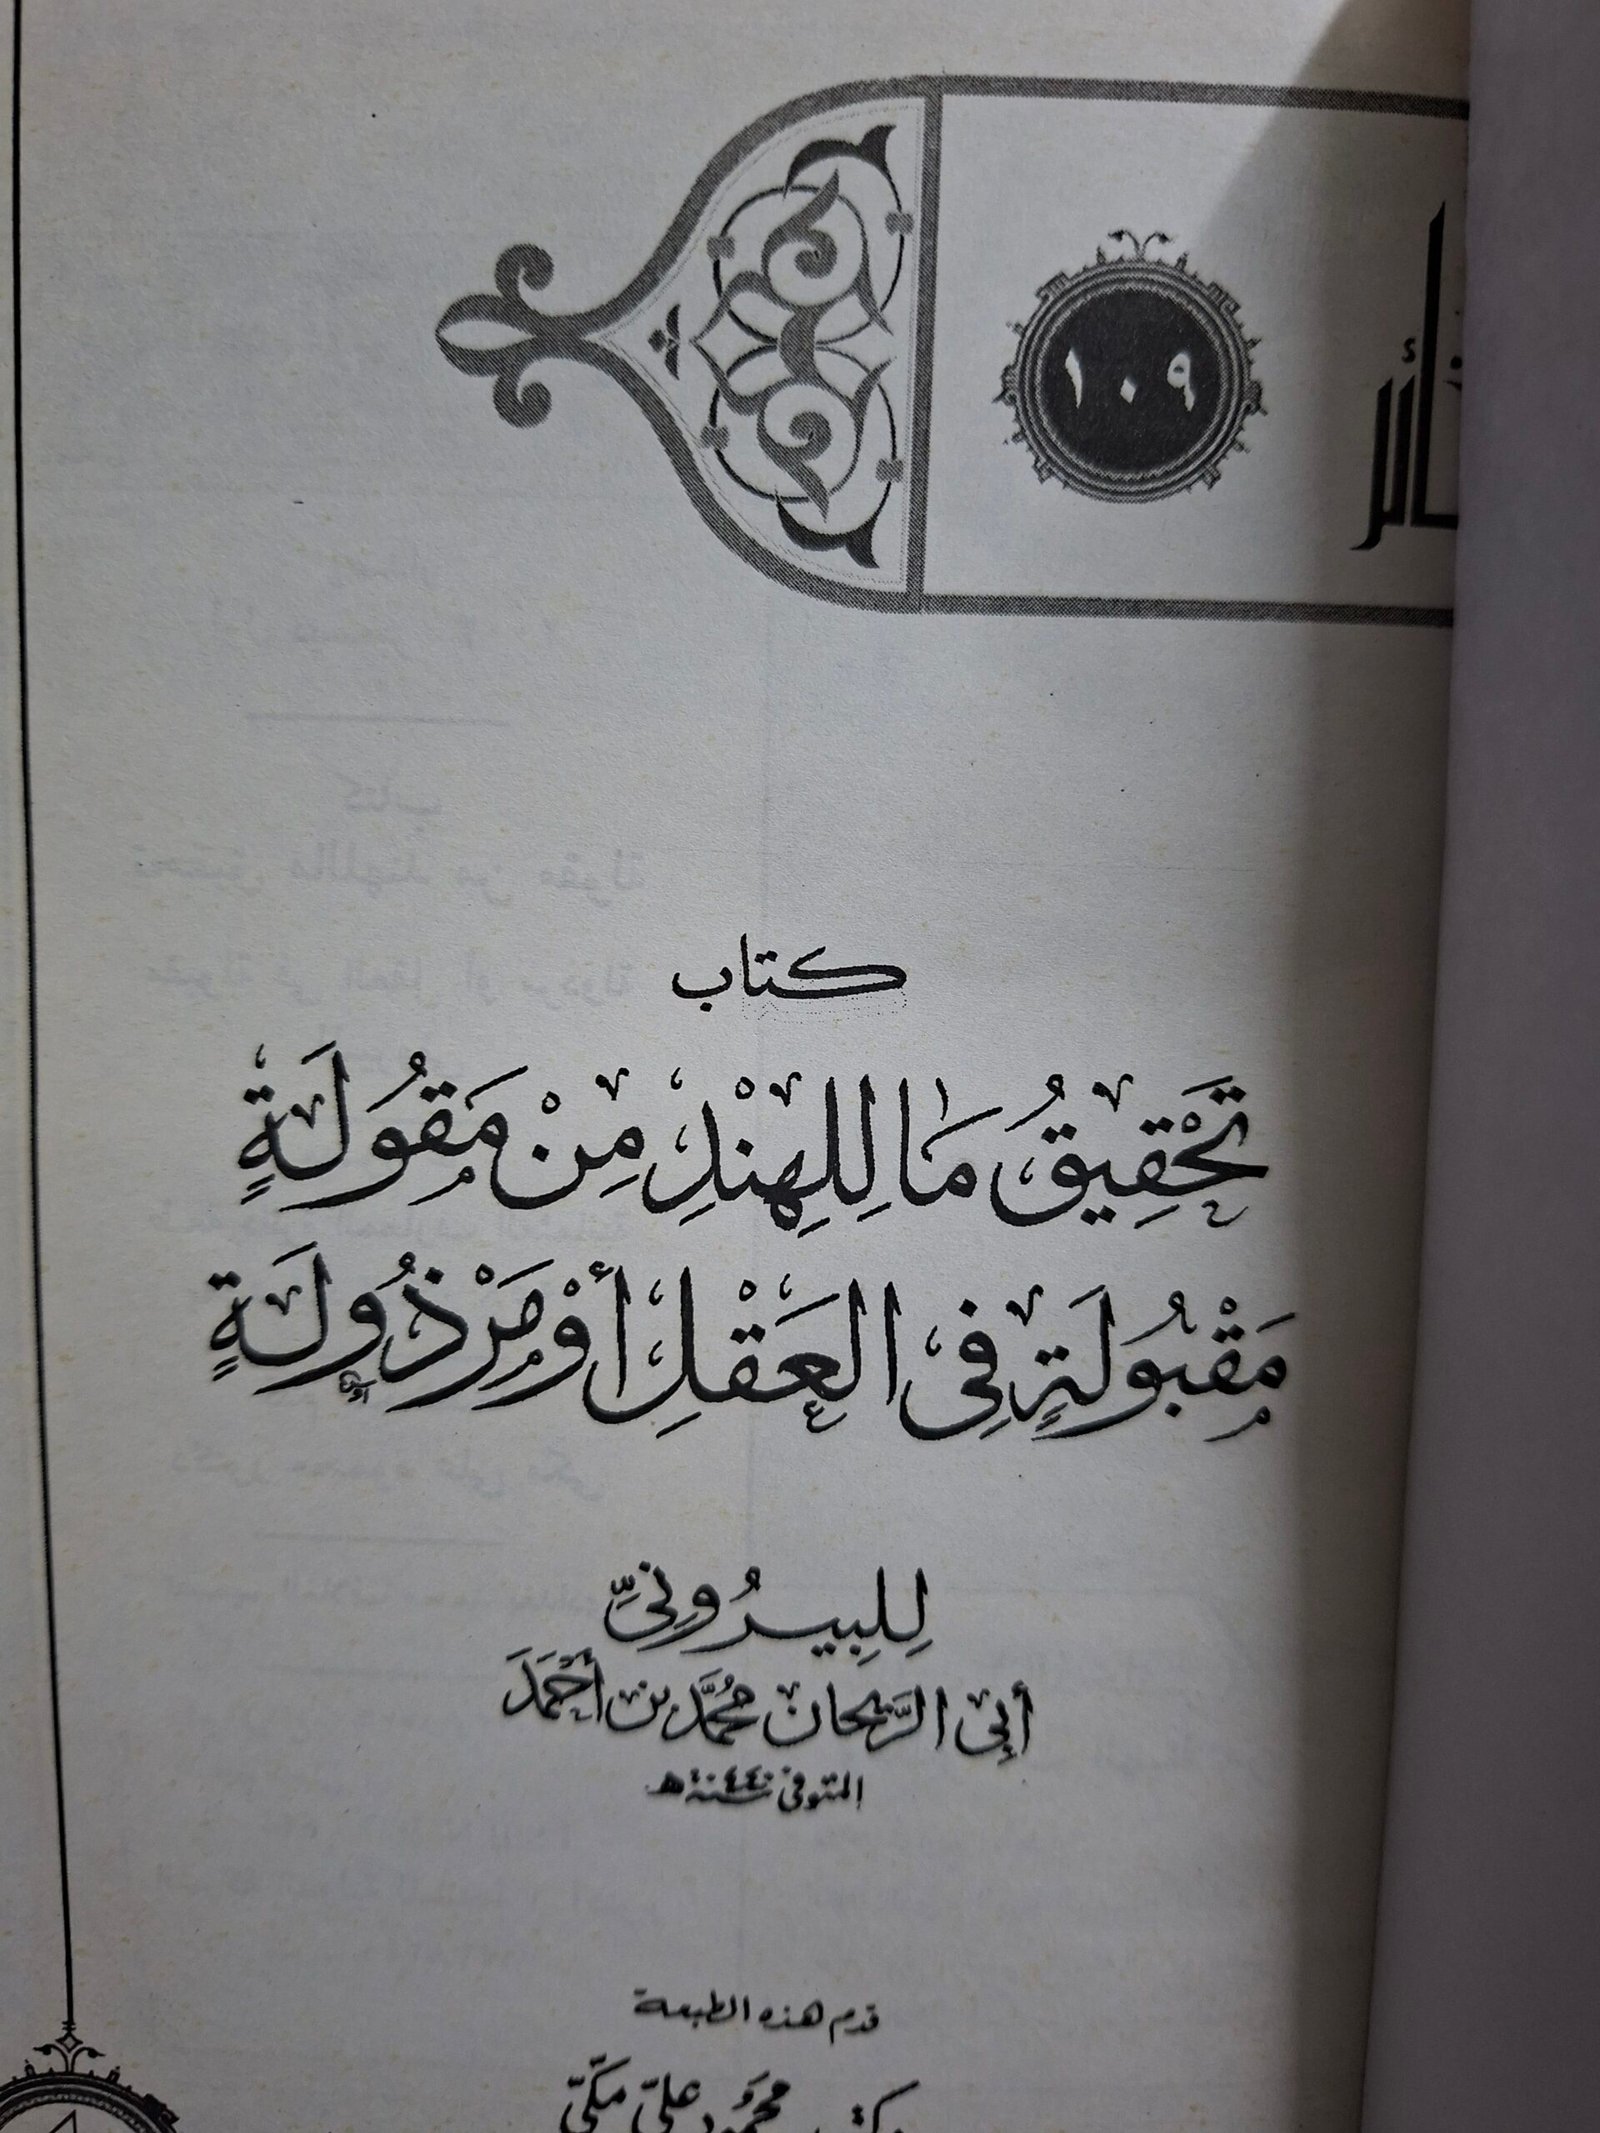 ١٠٩
كتاب
تَحْقِيقُ مَا لِلهِنْدِ مِنْ مَقُولَةٍ
مَقْبُولَةٍ فِي العَقْلِ أَوْ مَرْذُولَةٍ
لِلبِيرُونِيِّ
أَبِي الرَّيْحَان مُحَمَّد بن أَحْمَدَ
المتوفى سنة ٤٤٠ هـ
قدم هذه الطبعة
محمود علي مكّي